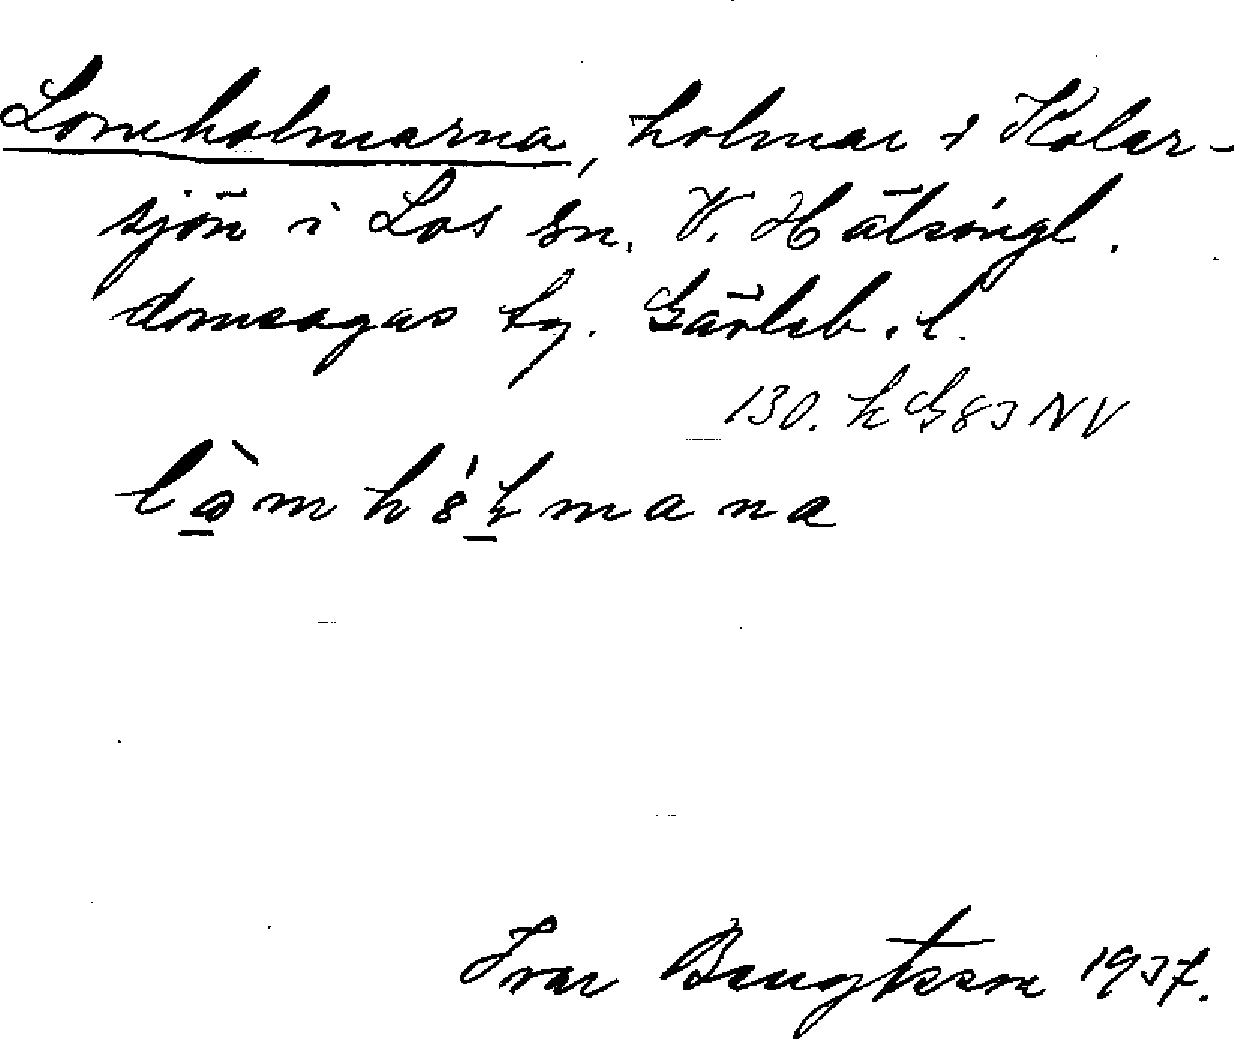 Lomholmarna, holmar i Kolar-
sjön i Los sn. V. Hälsingl.
domsagas tg. Gävleb. l.
130. h G83 NV
lò̱mhó̱lmana
Ivar Bengtsson 1937.